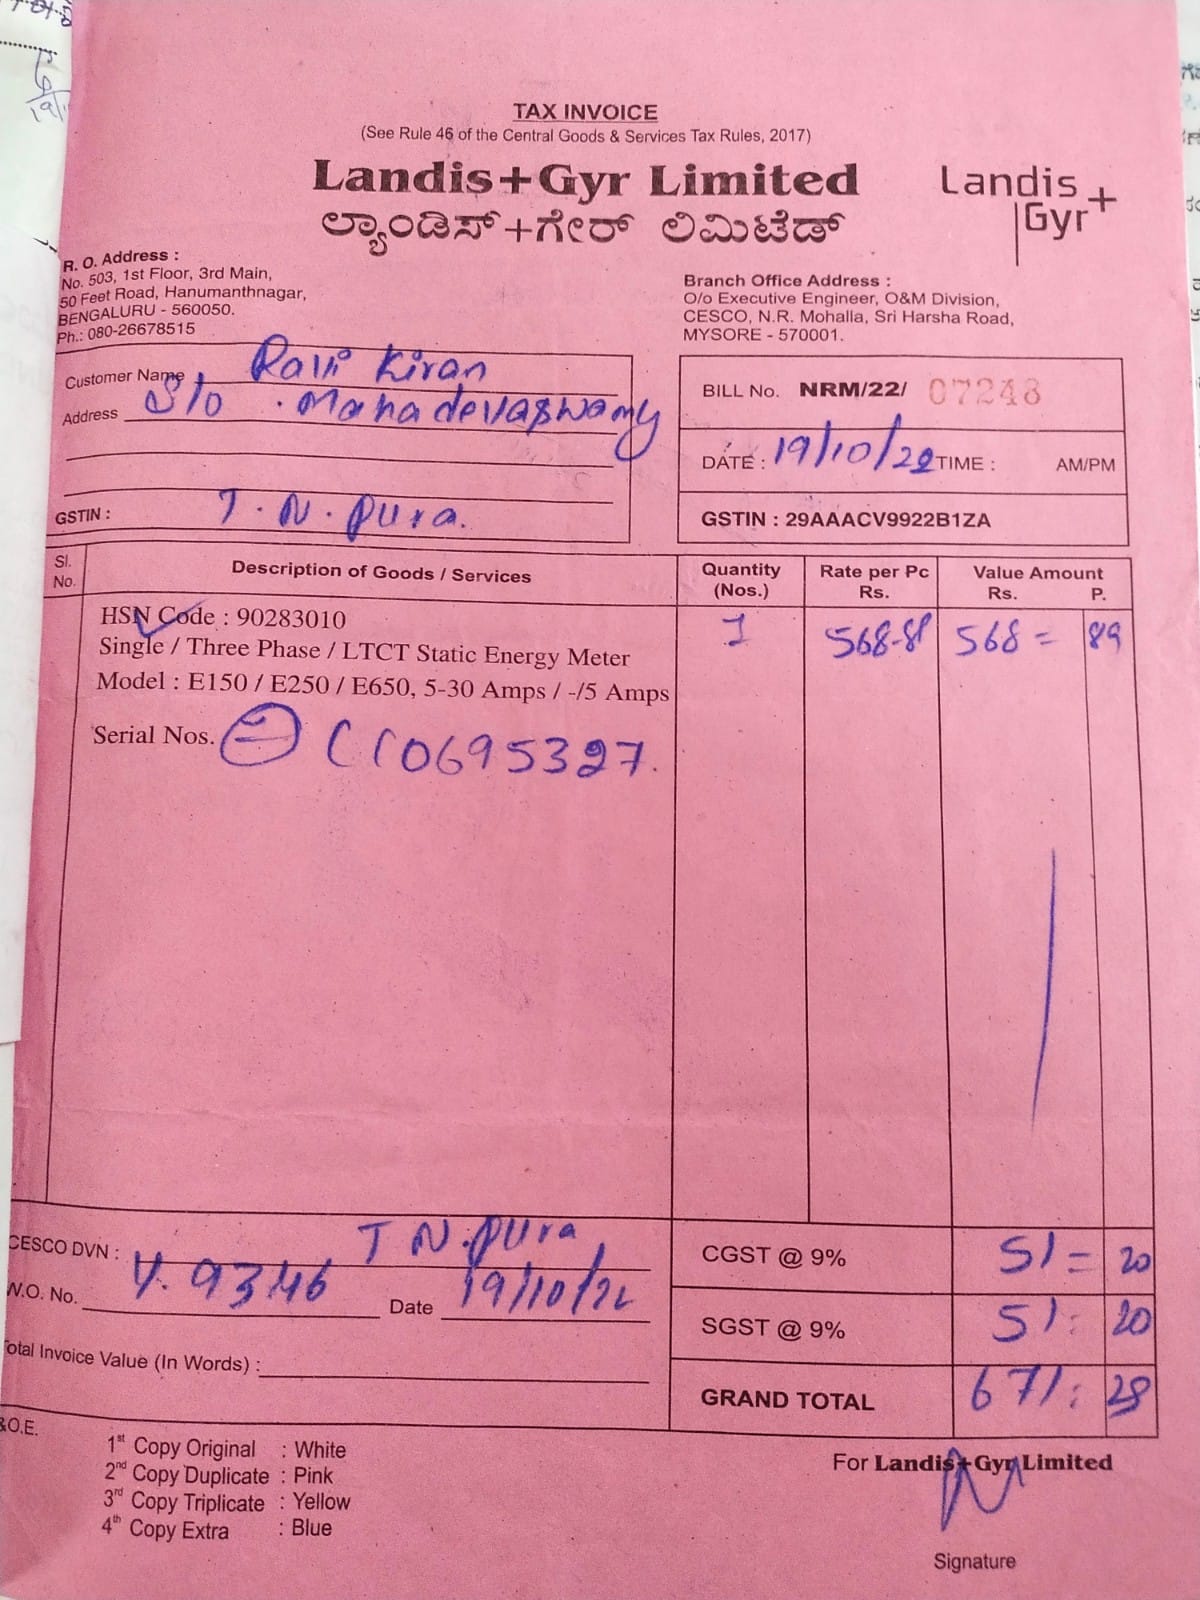 TAX INVOICE
(See Rule 46 of the Central Goods & Services Tax Rules, 2017)
Landis+Gyr Limited
ಲ್ಯಾಂಡಿಸ್+ಗೇರ್ ಲಿಮಿಟೆಡ್
Landis
Gyr+
R. O. Address :
No. 503, 1st Floor, 3rd Main,
50 Feet Road, Hanumanthnagar,
BENGALURU - 560050.
Ph.: 080-26678515
Branch Office Address :
O/o Executive Engineer, O&M Division,
CESCO, N.R. Mohalla, Sri Harsha Road,
MYSORE - 570001.
Customer Name Ravi Kiran
Address S/o . Mahadevaswamy
GSTIN : T. N. Pura.
BILL No. NRM/22/ 07248
DATE : 19/10/22 TIME : AM/PM
GSTIN : 29AAACV9922B1ZA
Sl. No. Description of Goods / Services Quantity (Nos.) Rate per Pc Rs. Value Amount Rs. P.
HSN Code : 90283010 1 568 = 89
Single / Three Phase / LTCT Static Energy Meter
Model : E150 / E250 / E650, 5-30 Amps / -/5 Amps
Serial Nos. 0695327.
CESCO DVN : T N. Pura
W.O. No. 9346 Date 19/10/22
Total Invoice Value (In Words) :
CGST @ 9% 51 = 20
SGST @ 9% 51 : 20
GRAND TOTAL 671 : 29
&O.E.
1st Copy Original : White
2nd Copy Duplicate : Pink
3rd Copy Triplicate : Yellow
4th Copy Extra : Blue
For Landis+Gyr Limited
Signature